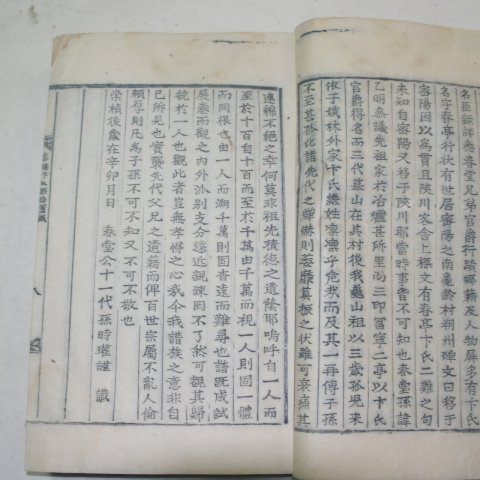 名臣錄詳叅春亭兄弟官爵行蹟鄕籍及人物屛多有卞氏
名字春亭行狀有世居密陽之南龜齡村朔州碑文曰移于
密陽因以為貫且陜川客舍上樑文有春亭卞氏二難之句
未知自密陽又移于陜川耶當時事皆不可知也春堂孫諱
乙明叅議先祖家於冶爐甚所里而三印冨寧二亭以卞氏
官爵得名而三代墓山在其村後我龜山祖以三歲孤兒來
依于娥林外家卞氏継姓凜凜乎危哉而及其一再傳子孫
不至甚孤此譜先代之輝赫則萎靡莫振之狀雖可哀痛其
連綿不絶之幸何莫非祖先積德之遺蔭耶嗚呼自一人而
至於十百自十百而至於千萬由千萬而視一人則固一體
而同根也由一人而溯千萬則固香遠而難尋也譜旣成試
展卷而觀之內外派别支分遠近親踈曰不了然可觀其歸
統於一人也觀此者豈無孝悌之心哉今我譜族之意非自
已所也實襲先代父兄之遺藉而俾百世宗屬不亂人倫
頼存則凡為子孫不可不知又不可不敬也
崇禎後歲在辛卯月日 春堂公十一代孫時瓘謹 識
八